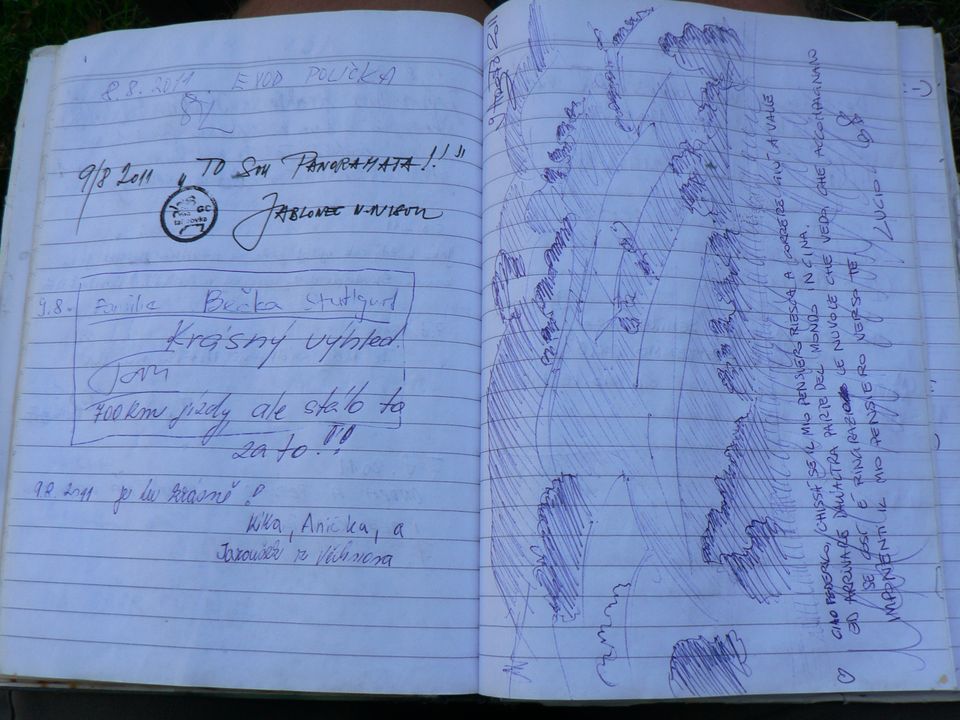 8.8.2011 EVOD POLIČKA
9/8 2011 „TO SOU PANORAMATA!!"
JABLONEC N. NISOU
9.8. Familie Bečka Stuttgart
Krásný výhled!
Tom
700km jízdy, ale stálo to
za to!!
9.8. 2011 je tu krásně!
Kika, Anička, a
9 AGOSTO 2011
CIAO FEDERICO, CHISSÀ SE IL MIO PENSIERO RIESCE A CORRERE GIÙ A VALLE
ED ARRIVA DALL'ALTRA PARTE DEL MONDO IN CINA.
SE COSÌ È RINGRAZIO LE NUVOLE CHE VEDO, CHE ACCOMPAGNANO
IMPONENTI IL MIO PENSIERO VERSO TE.
LUCIO